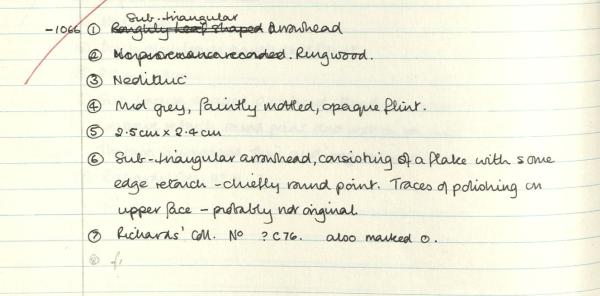 Sub-triangular
-1066 ① Roughly leaf shaped arrowhead
② No provenance recorded. Ringwood.
③ Neolithic
④ Mid grey, faintly mottled, opaque flint.
⑤ 2.5cm x 2.4cm
⑥ Sub-triangular arrowhead, consisting of a flake with some
edge retouch - chiefly round point. Traces of polishing on
upper face - probably not original.
⑦ Richards' Coll. No ? C76. also marked O.
⑧